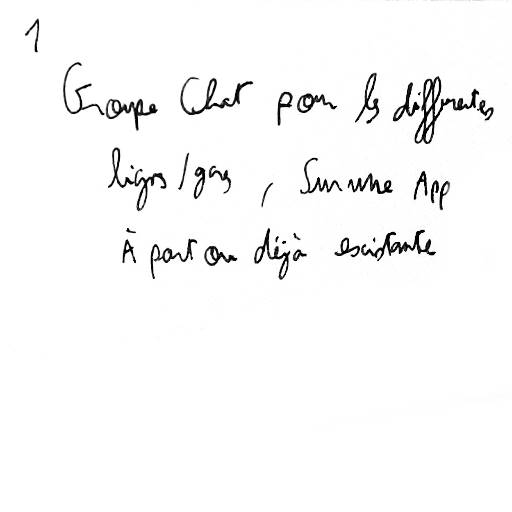 1
Groupe Chat pour les différentes
lignes/gares, Sur une App
À part ou déjà existante